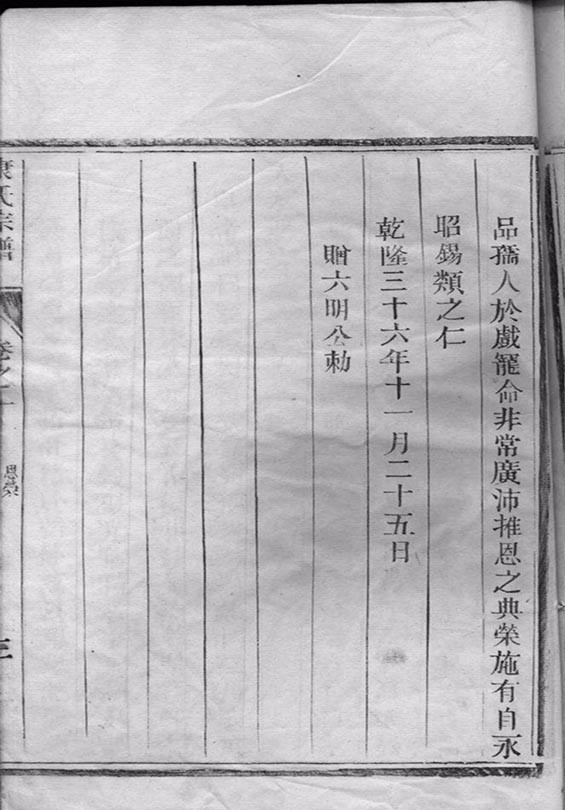 品孺人於戲寵命非常廣沛推恩之典榮施有自永
昭錫類之仁
乾隆三十六年十一月二十五日
贈六明公勅
康氏宗譜
卷之一
恩榮
三